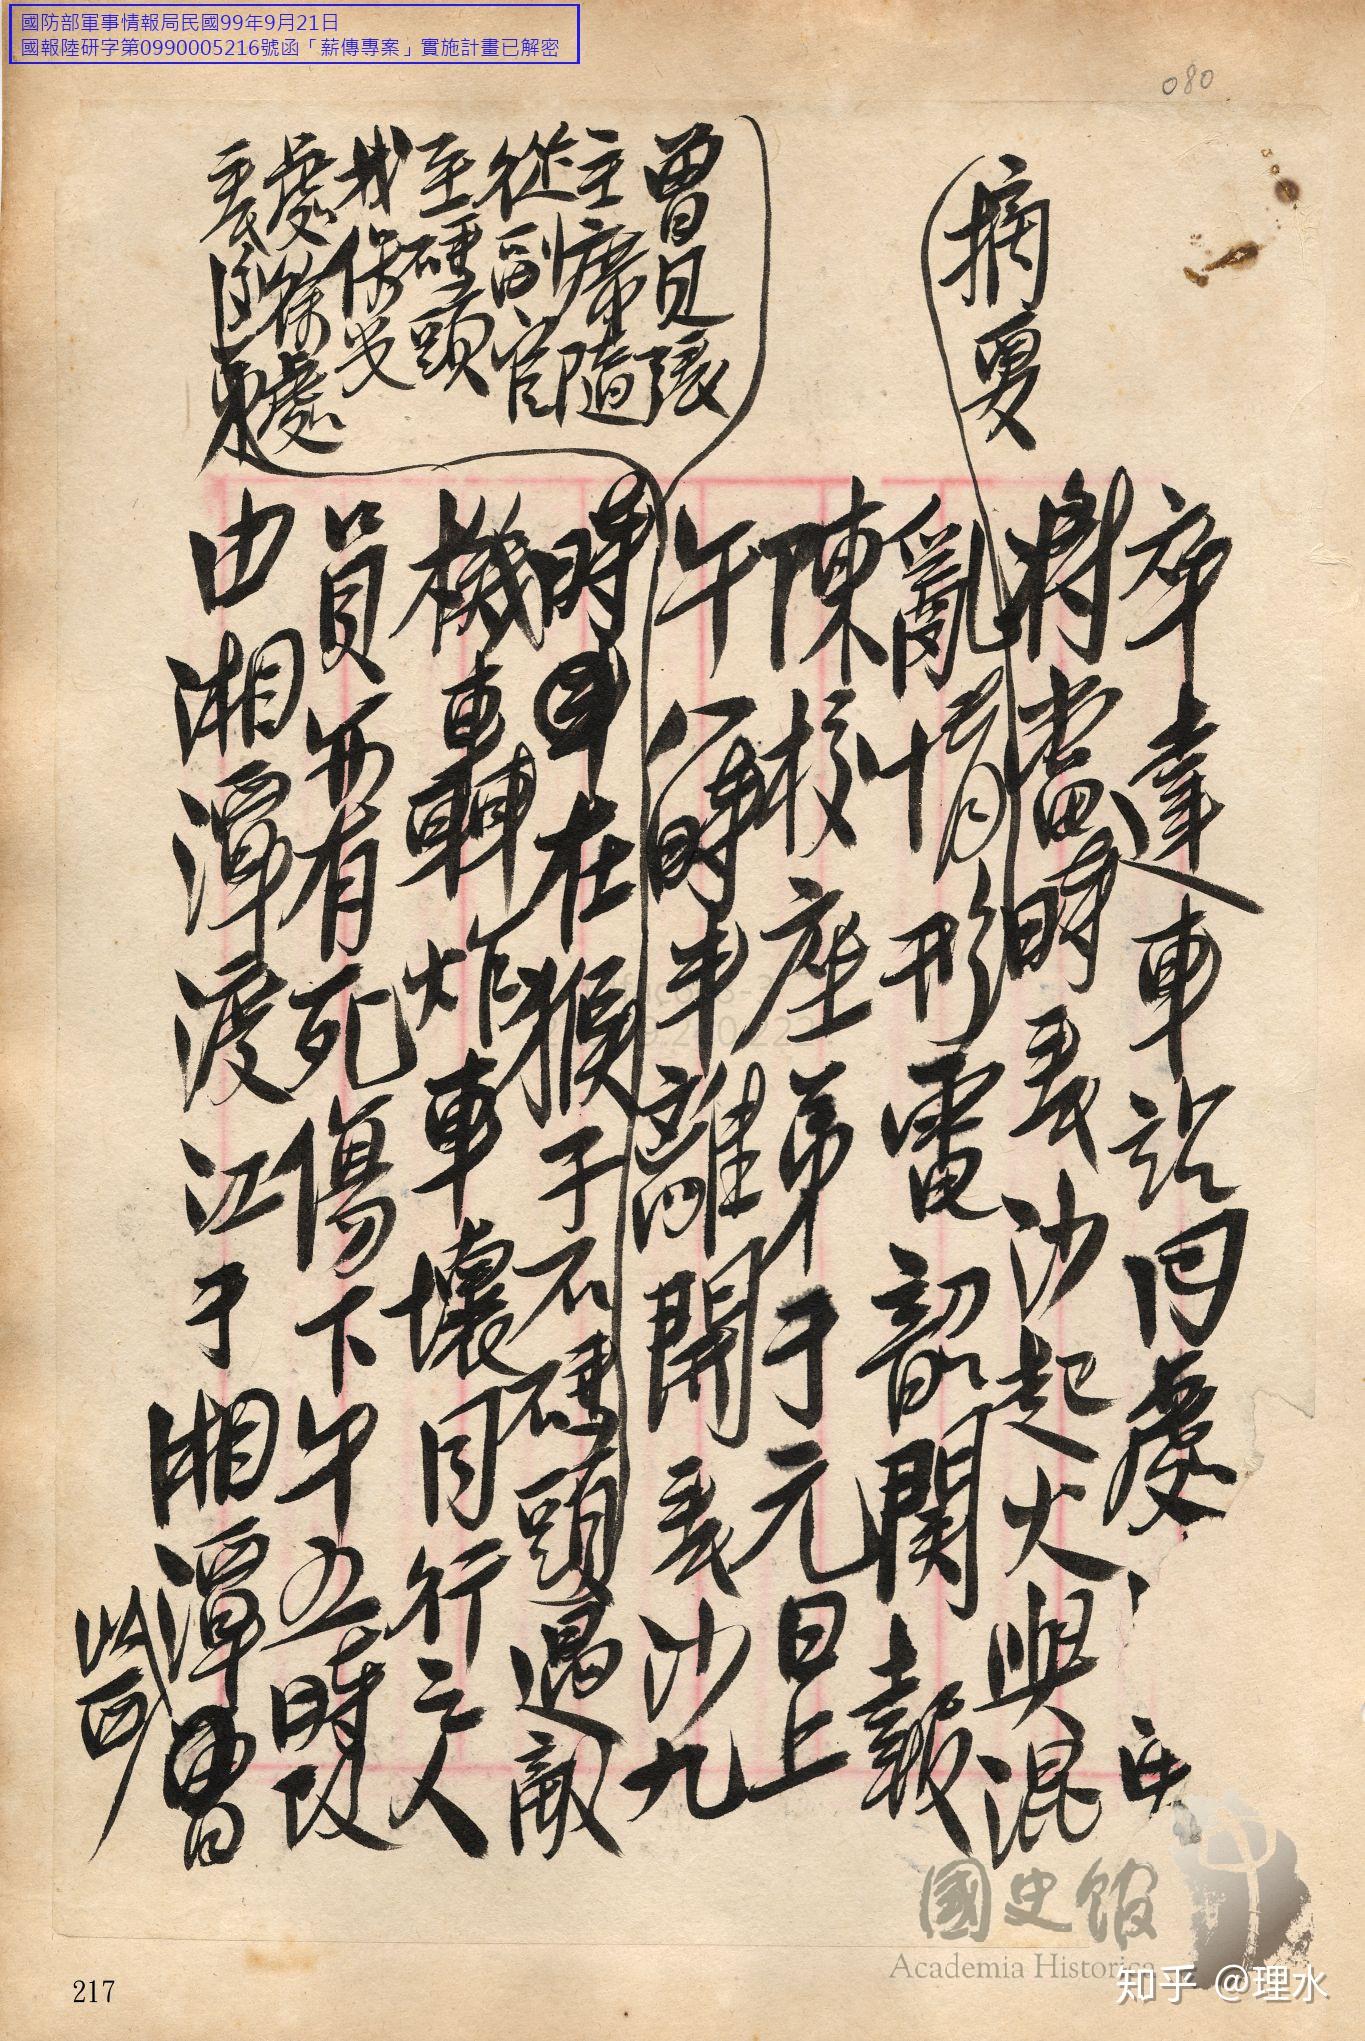 國防部軍事情報局民國99年9月21日
國報陸研字第0990005216號函「薪傳專案」實施計畫已解密
080
摘
卒達車站同處
將當時長沙起火與混
亂情形電韶關報
陳校座弟于元日上
午八時半離開長沙九
時半在猴子石碼頭遇敵
機轟炸車壞同行之人
員亦有死傷下午五時改
由湘潭渡江于湘潭曾
曾見張
主席隨
從副官
至碼頭
我
處徐處
長
217
國史館
Academia Historica
知乎 @理水